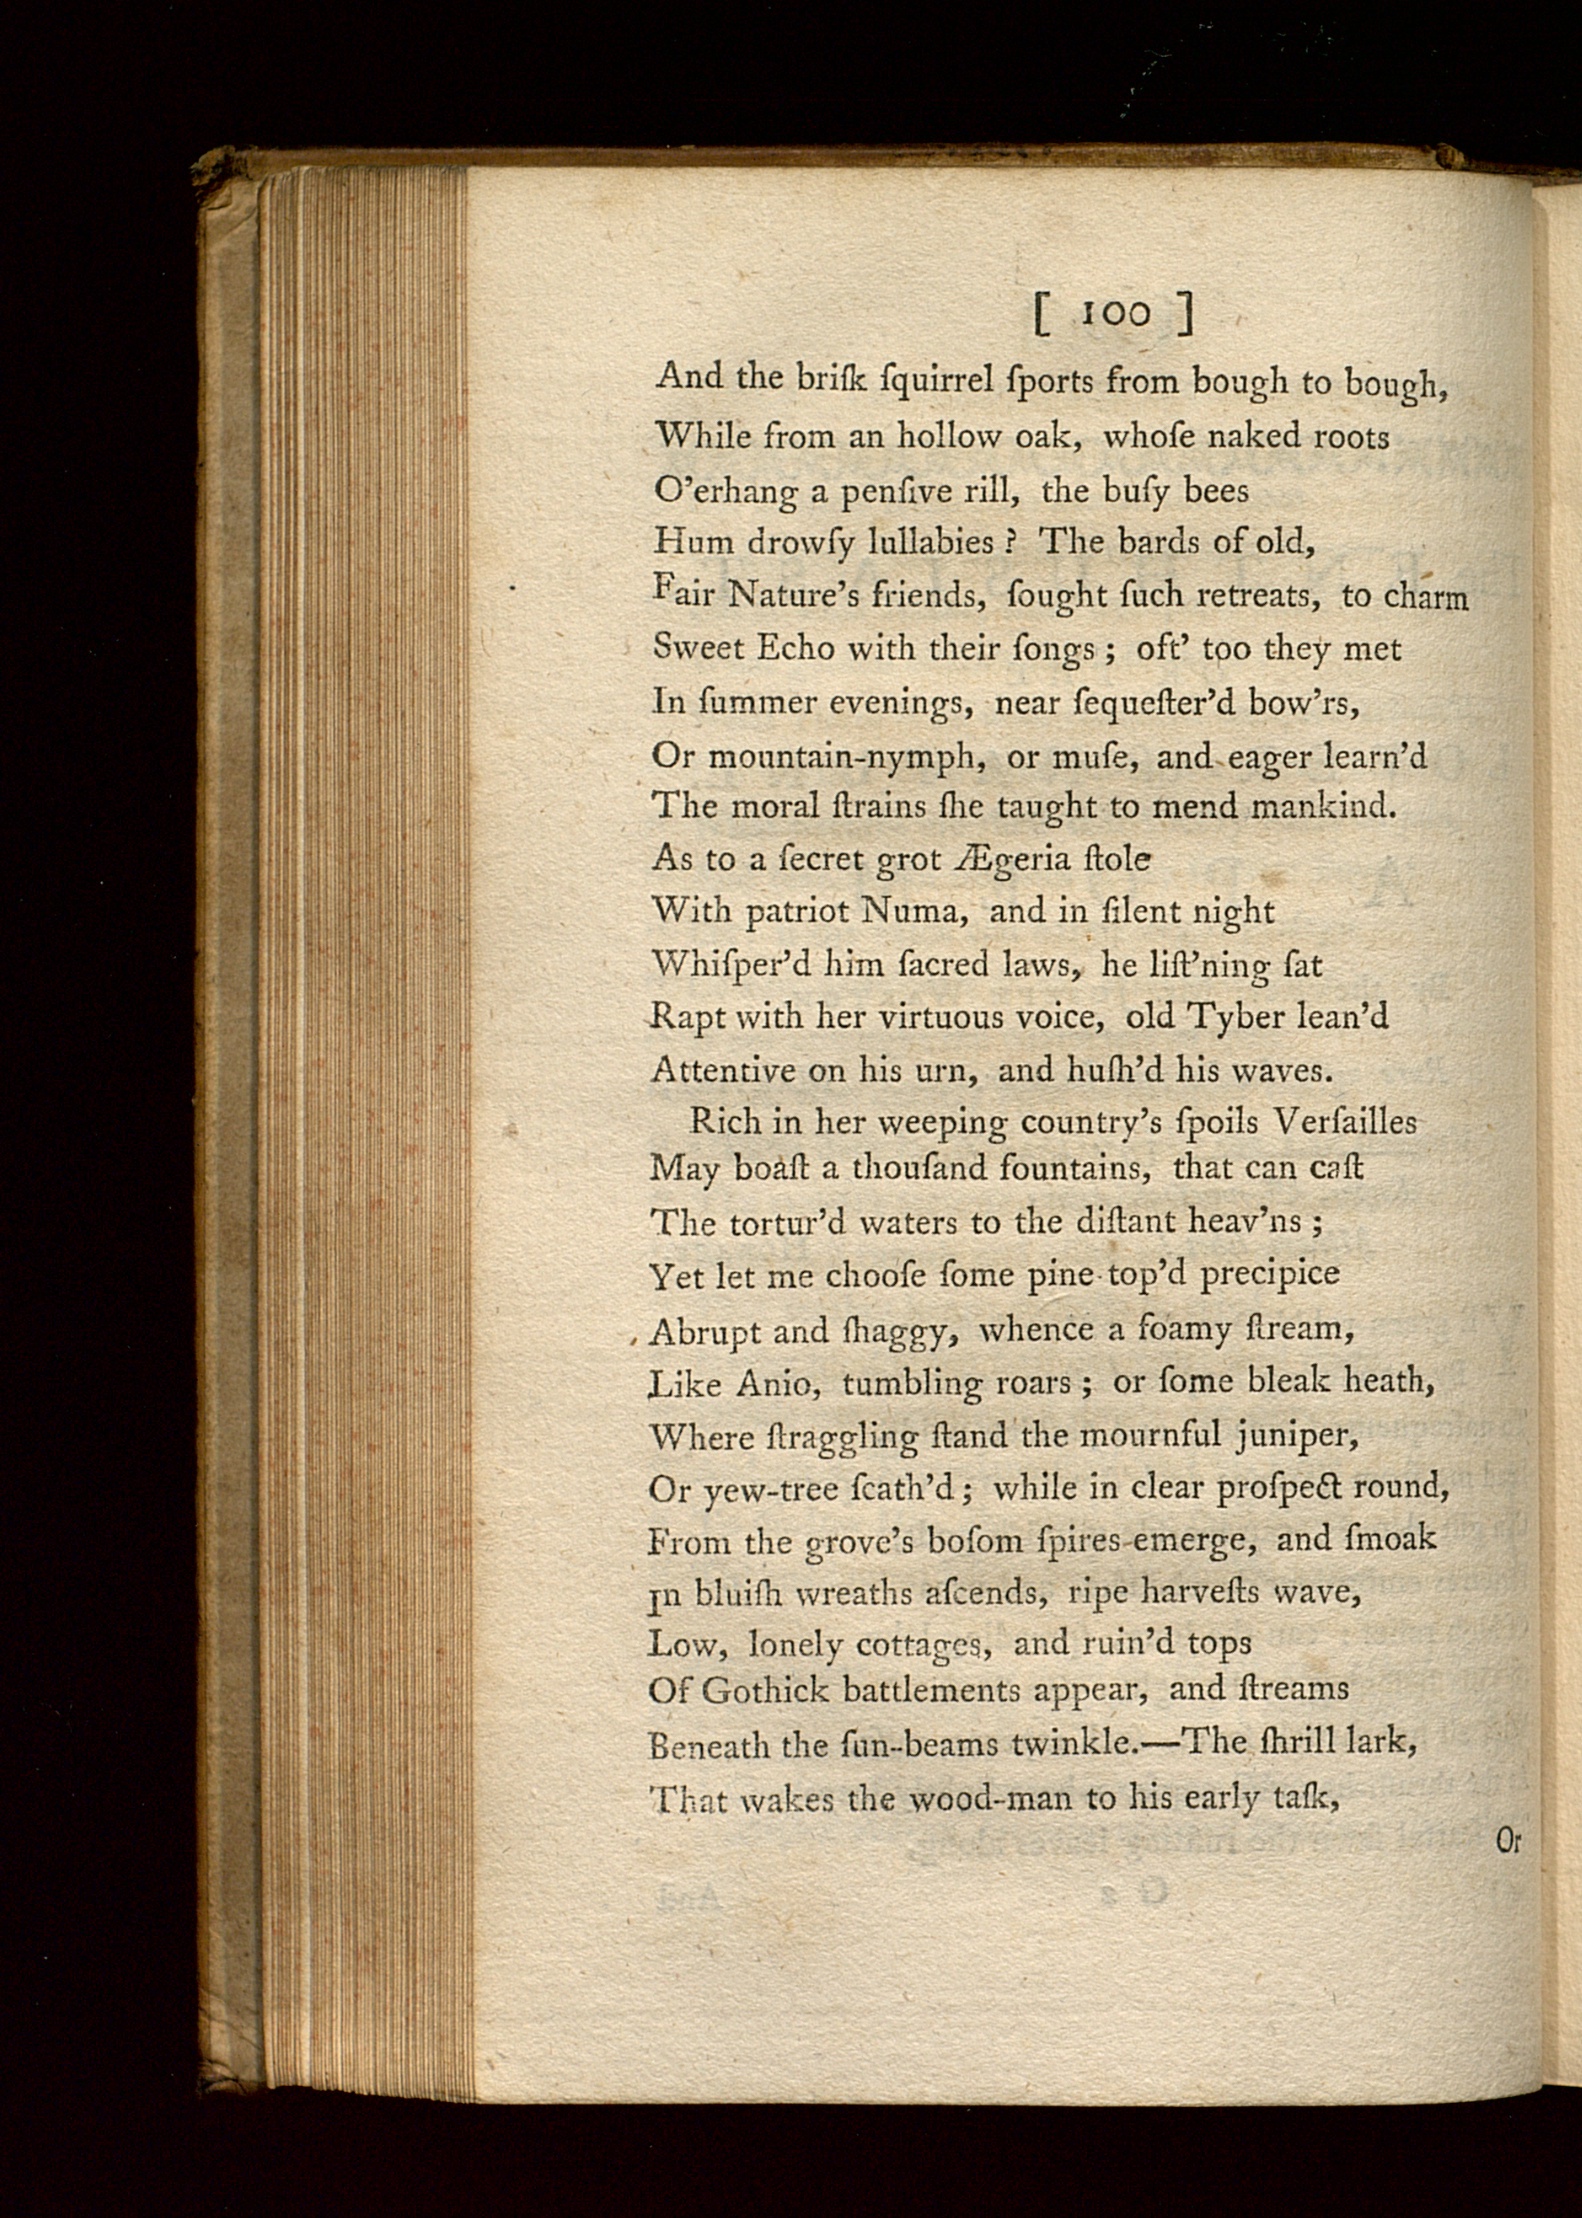 [ 100 ]
And the briſk ſquirrel ſports from bough to bough,
While from an hollow oak, whoſe naked roots
O'erhang a penſive rill, the buſy bees
Hum drowſy lullabies ? The bards of old,
Fair Nature's friends, ſought ſuch retreats, to charm
Sweet Echo with their ſongs ; oft' too they met
In ſummer evenings, near ſequeſter'd bow'rs,
Or mountain-nymph, or muſe, and eager learn'd
The moral ſtrains ſhe taught to mend mankind.
As to a ſecret grot Ægeria ſtole
With patriot Numa, and in ſilent night
Whiſper'd him ſacred laws, he liſt'ning ſat
Rapt with her virtuous voice, old Tyber lean'd
Attentive on his urn, and huſh'd his waves.
Rich in her weeping country's ſpoils Verſailles
May boaſt a thouſand fountains, that can caſt
The tortur'd waters to the diſtant heav'ns ;
Yet let me chooſe ſome pine-top'd precipice
Abrupt and ſhaggy, whence a foamy ſtream,
Like Anio, tumbling roars ; or ſome bleak heath,
Where ſtraggling ſtand the mournful juniper,
Or yew-tree ſcath'd ; while in clear proſpect round,
From the grove's boſom ſpires emerge, and ſmoak
In bluiſh wreaths aſcends, ripe harveſts wave,
Low, lonely cottages, and ruin'd tops
Of Gothick battlements appear, and ſtreams
Beneath the ſun-beams twinkle.—The ſhrill lark,
That wakes the wood-man to his early taſk,
Or